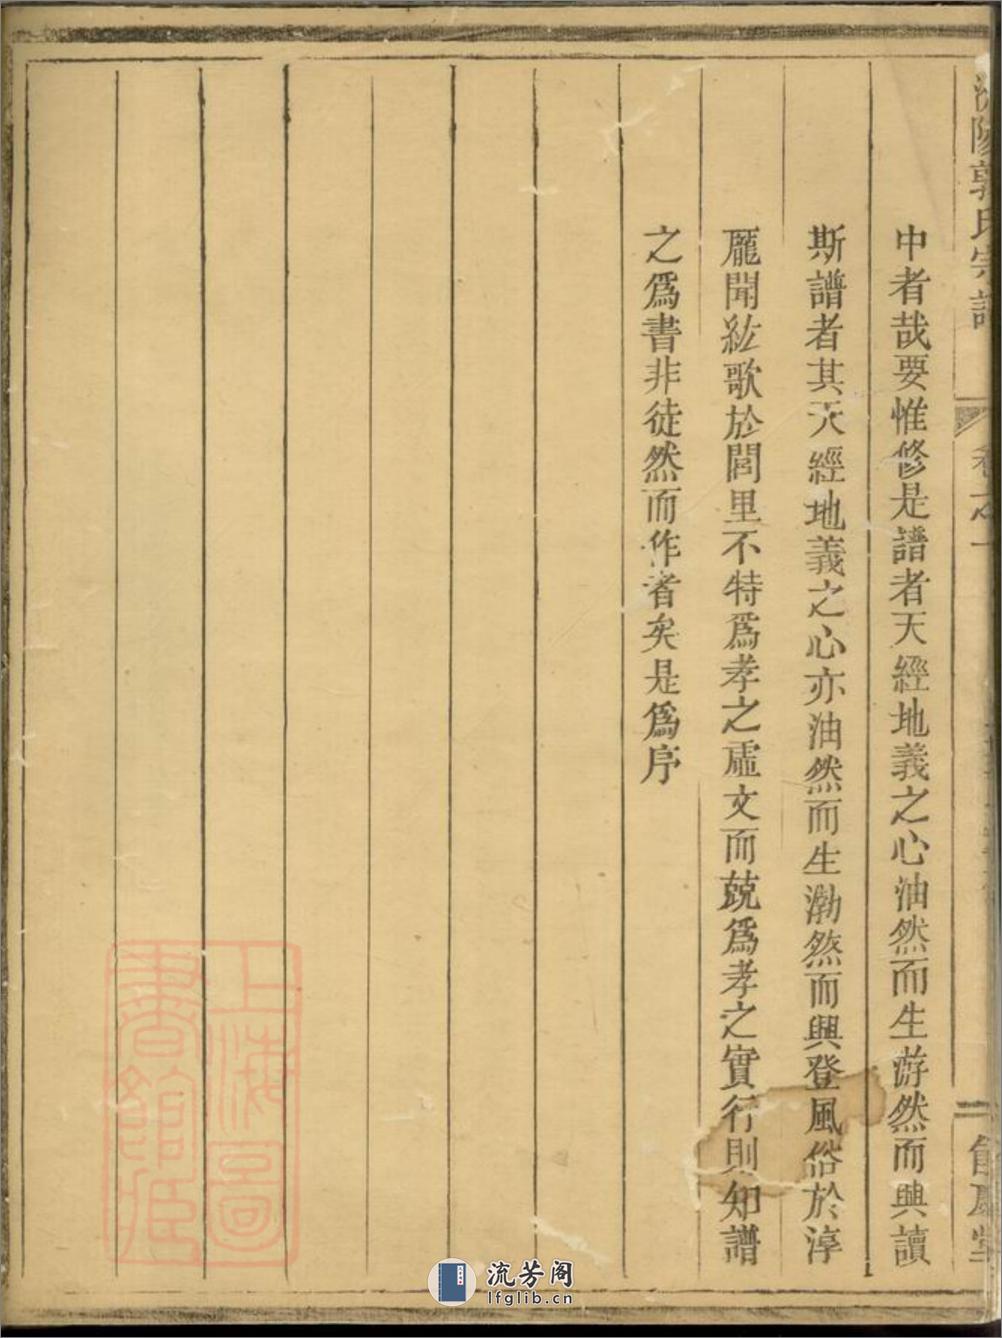 陽郭氏宗譜
卷之一
中者哉要惟修是譜者天經地義之心油然而生浡然而興讀
斯譜者其天經地義之心亦油然而生渤然而興登風俗於淳
龐聞絃歌於閭里不特爲孝之虛文而兢爲孝之實行則知譜
之爲書非徒然而作者矣是爲序
上海圖
書館藏
流芳阁
lfglib.cn